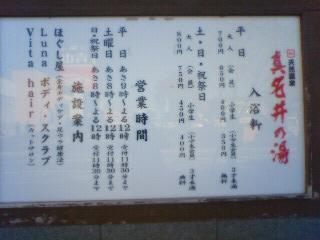 天然温泉
真名井の湯
入浴料
平日
大人 (会員) 小学生 (小学生会員) 3才未満
700円 650円 400円 350円 無料
土・日・祝祭日
大人 (会員) 小学生 (小学生会員) 3才未満
800円 750円 450円 400円 無料
営業時間
平日 あさ9時~よる12時 受付11時30分まで
土曜日 あさ8時~よる12時 受付11時30分まで
日・祝祭日 あさ8時~よる12時 受付11時30分まで
施設案内
ほぐし屋
Luna ボディ・スクラブ
Vita hair (カットサロン)